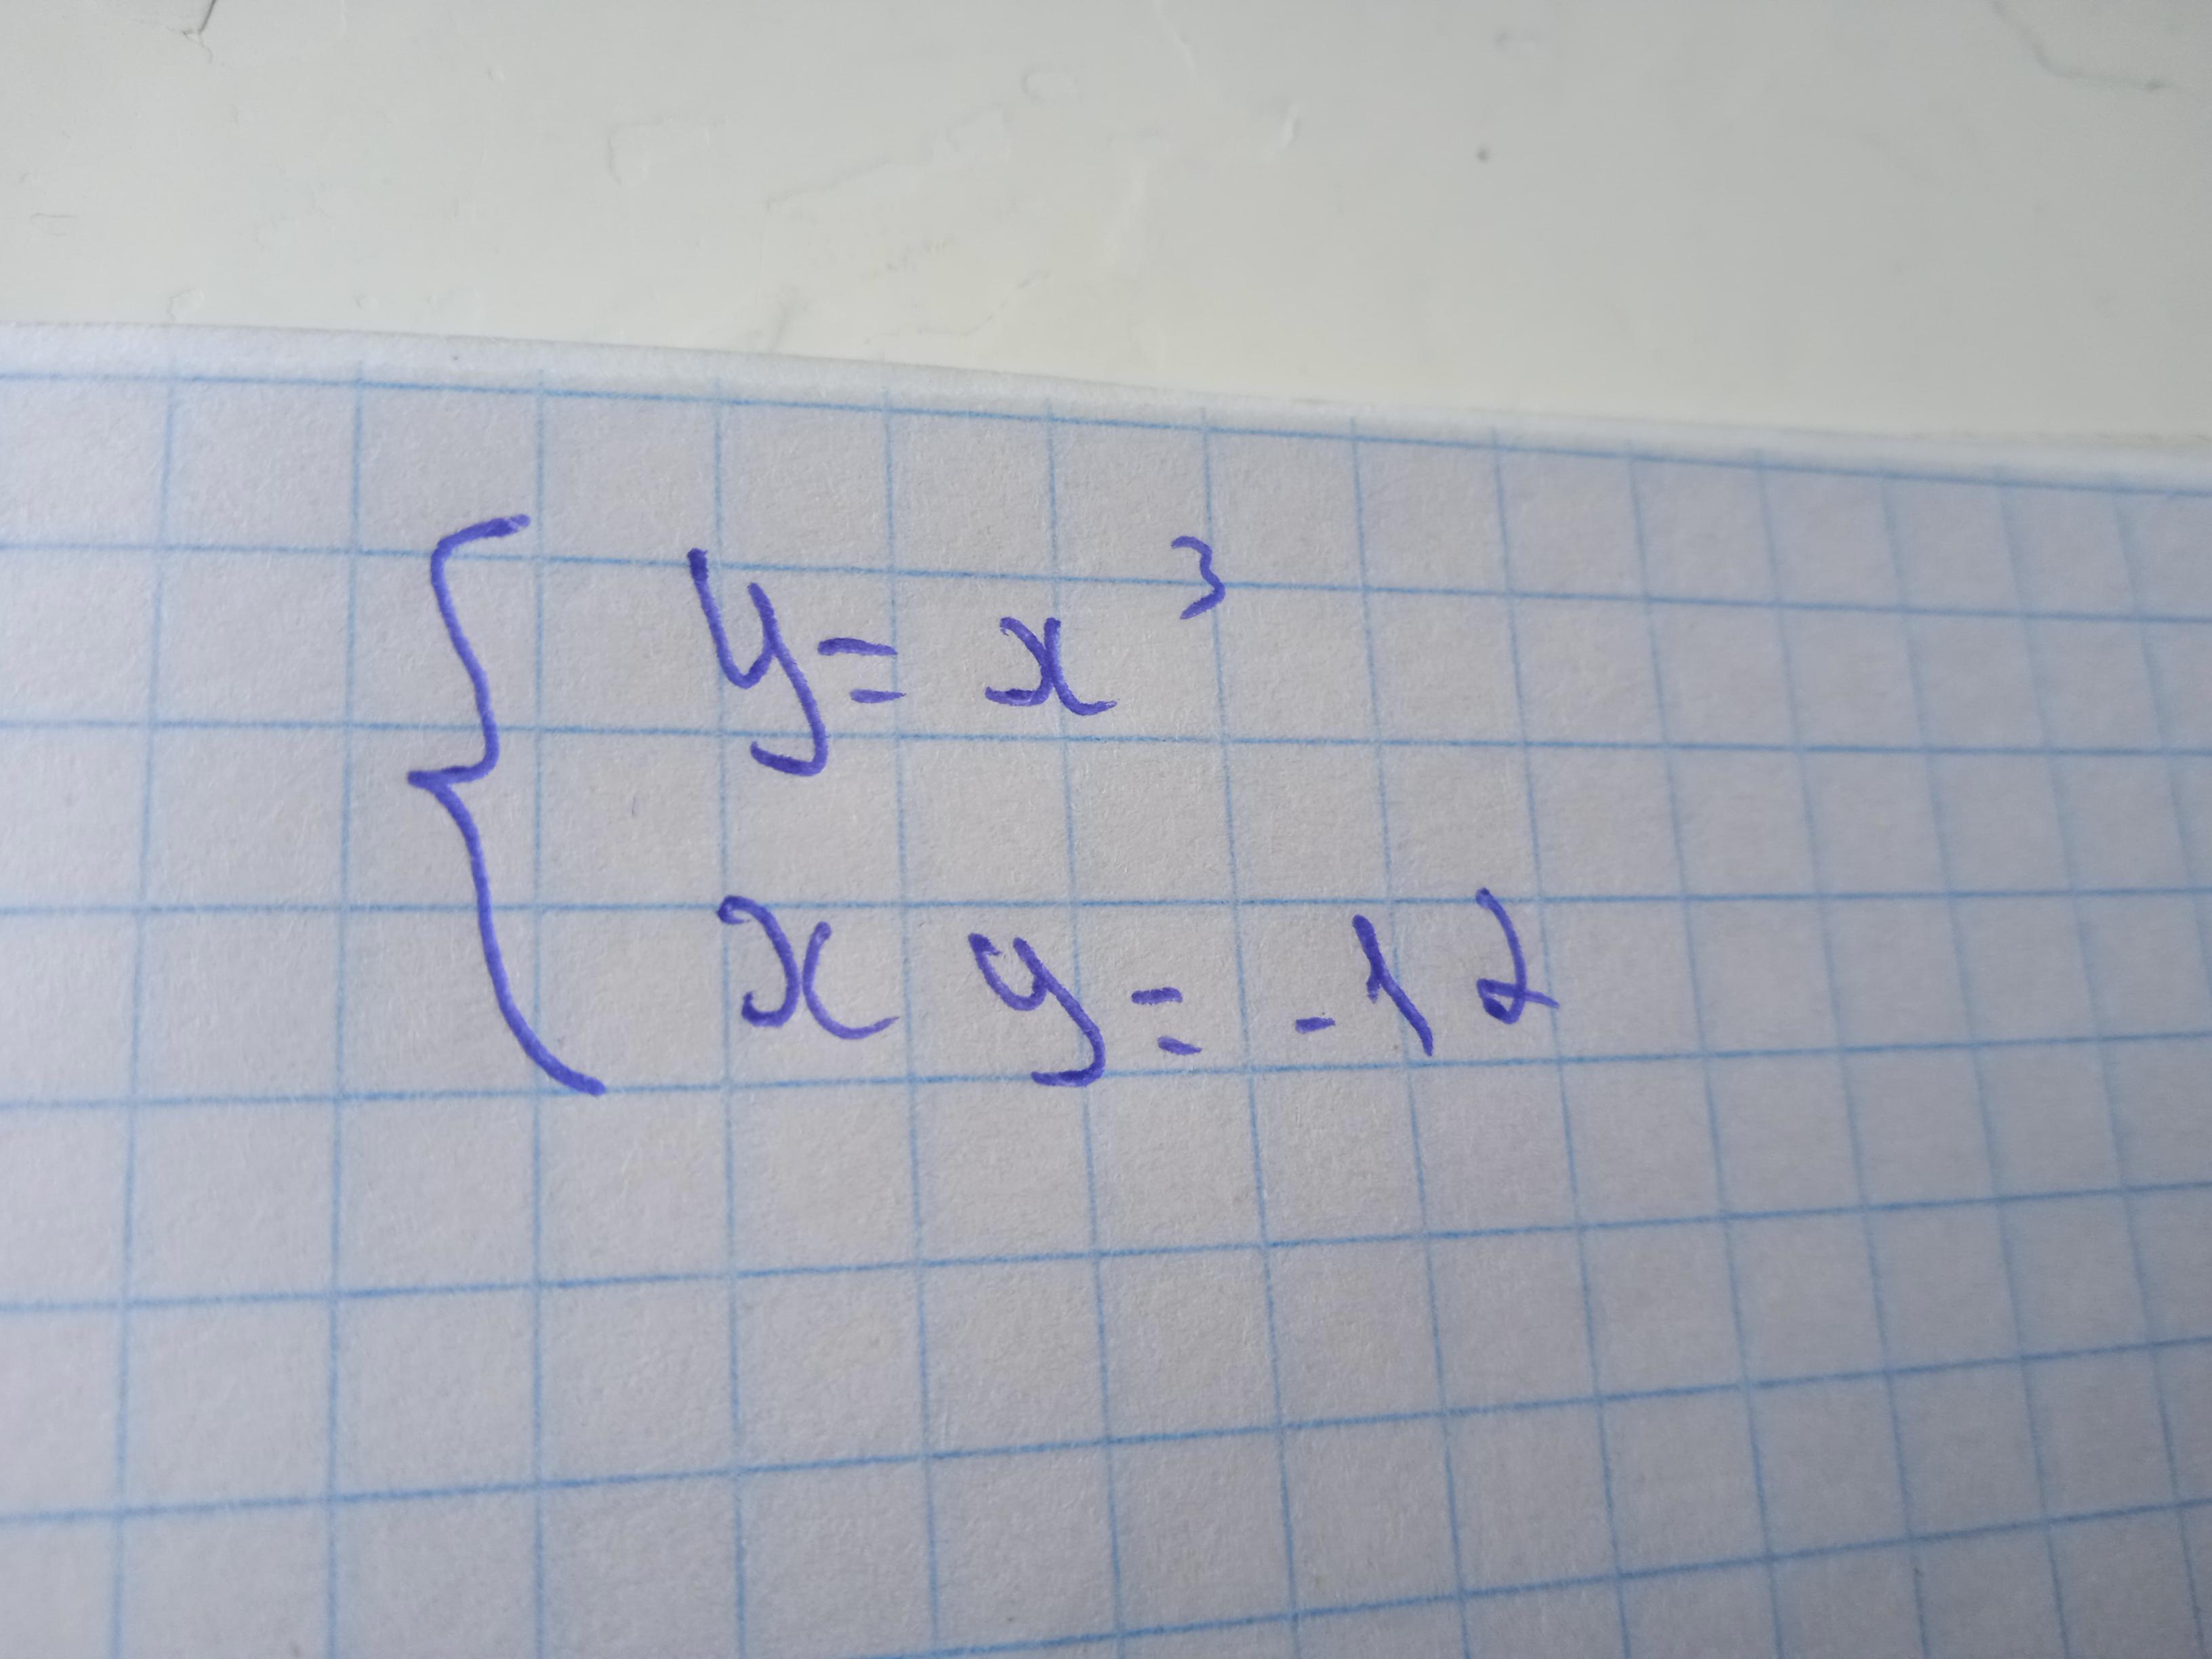 y = x³
xy = -12